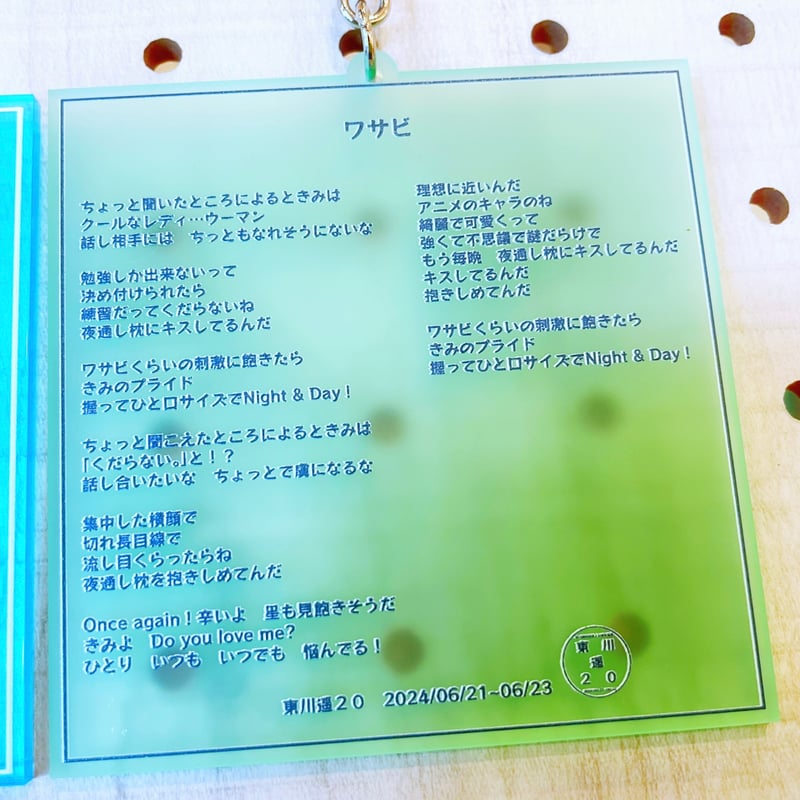 ワサビ
ちょっと聞いたところによるときみは
クールなレディ…ウーマン
話し相手には　ちっともなれそうにないな
勉強しか出来ないって
決め付けられたら
練習だってくだらないね
夜通し枕にキスしてるんだ
ワサビくらいの刺激に飽きたら
きみのプライド
握ってひと口サイズでNight & Day！
ちょっと聞こえたところによるときみは
「くだらない。」と！？
話し合いたいな　ちょっとで虜になるな
集中した横顔で
切れ長目線で
流し目くらったらね
夜通し枕を抱きしめてんだ
Once again！辛いよ　星も見飽きそうだ
きみよ　Do you love me?
ひとり　いつも　いつでも　悩んでる！
理想に近いんだ
アニメのキャラのね
綺麗で可愛くって
強くて不思議で謎だらけで
もう毎晩　夜通し枕にキスしてるんだ
キスしてるんだ
抱きしめてんだ
ワサビくらいの刺激に飽きたら
きみのプライド
握ってひと口サイズでNight & Day！
東川遥２０　2024/06/21~06/23
東川
遥
２０